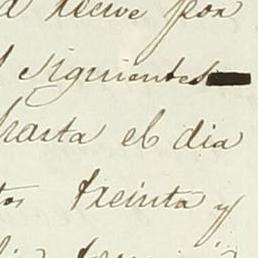 recive por
siguientes
hasta el dia
tos treinta y